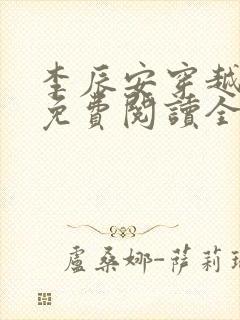 李辰安穿越
免費閱讀全
盧桑娜-薩莉